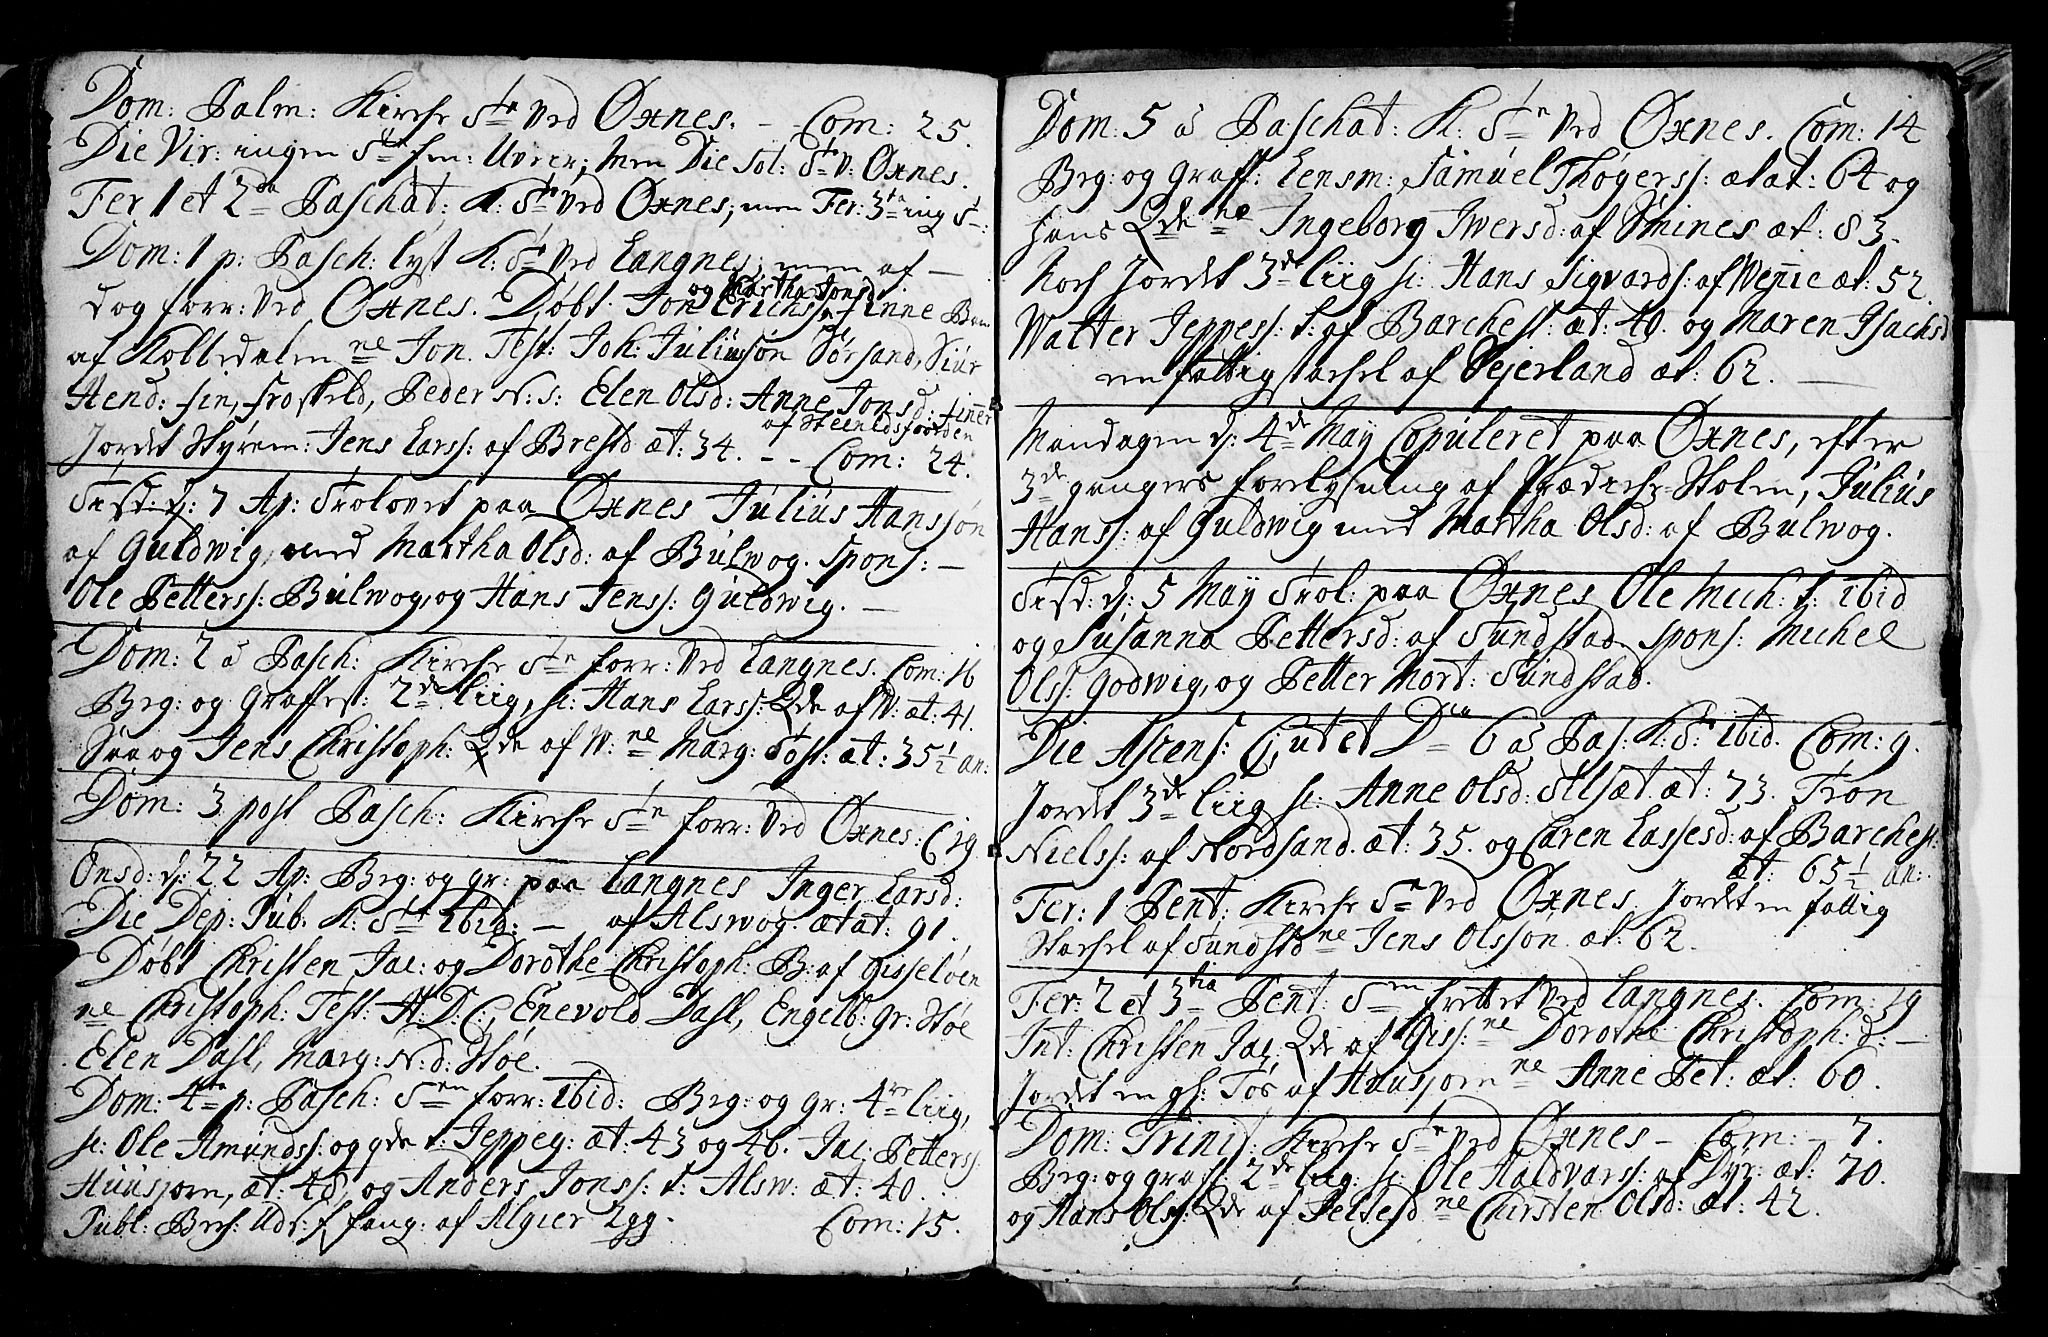 Dom: Palm: Kirche Ste ved Øxnes. - - Com: 25.
Die Vir: ingen Ste for: Uveir; Men Die Sol: Ste v: Øxnes.
Fer 1 et 2da Paschat: K: Ste ved Øxnes; men Fer: 3tia ing St:
Dom: 1 p: Pasch: lyst K: Ste ved Langnes; men af —
og Martha Jonsd
dog forr: ved Øxnes. Døbt Jon Erichss: Finne Barn
af Kolbedalen ne Jon. Test: Joh: Juliusøn Sørsand, Siur
Hend: fin, Froskeld, Peder N: s: Elen Olsd: Anne Jonsd: finer
af Steenldsfiorden
Jordet Styrem: Jens Larss: af Brestd æt: 34. - - Com: 24.
Tisd: d: 7 Ap: Trolovet paa Øxnes Julius Hanssøn
af Guldwig, med Martha Olsd: af Bulwog. Spons: —
Ole Petterss: Bulwog, og Hans Jenss: Guldwig. —
Dom: 2 á Pasch: Kirche Ste forr: ved Langnes. Com: 16
Beg: og Graffest: 2de liig, sc: Hans Larss: Qde af W: æt: 41.
Saa og Jens Christoph: Qde af W: ne Marg: Tost: æt: 35 1/2 an:
Dom: 3 post Pasch: Kirche Ste forr: ved Øxnes: C 19
Onsd: d: 22 Ap: Beg: og gr: paa Langnes Inger Larsd:
Die Dep: Pub. K: Ste ibid: — af Alswog. ætat: 91.
Døbt Christen Jac: og Dorothe Christoph: B: af Gisseløen
ne Christoph: Test: H: D: C; Enevold Dasl, Engelb: Gr: Støe
Elen Dasl, Marg: N: d: Støe.
Dom: 4ta p: Pasch: Sten forr: ibid: Beg: og gr: 4re liig,
sc: Ole Amundss: og qde t: Jeppeg: æt: 43 og 46. Jac: Petterss:
Huusjorn, æt: 48, og Anders Jonss: t: Alsw: æt: 40.
Publ: Bref: Udr: f fang: af Algier 2gg. Com: 15.
Dom: 5 á Paschat: K: Ste ved Øxnes. Com: 14
Beg: og Graff: Eensm: Samuel Thøgerss: ætat: 64 og
hans Qde ne Ingeborg Iwersd: af Smines æt: 83.
Noch Jordet 3de liig sc: Hans Sigvards: af Wennie æt: 52.
Watter Jeppess: t: af Barchest: æt: 40. og Maren Isachsd
en fattig stachel af Sejerland æt: 62. —
Mandagen d: 4de Maÿ Copuleret paa Øxnes, efter
3de gangers forelysning af Prædiche-Stolen, Julius
Hanss: af Guldwig med Martha Olsd: af Bulwog.
Tisd: d: 5 Maÿ Trol: paa Øxnes Ole Mich: s: ibid
og Susanna Pettersd: af Sundstad. Spons: Michel
Olss: Godwig, og Petter Mort: Sundstad.
Die Ascens: Cj, ut et Dca 6 á Pas: K: Ste ibid. Com: 9.
Jordet 3de liig sc: Anne Olsd: Stlsæt æt: 73. Tron
Nielss: af Nordsand. æt: 35. og Caren Lassesd: af Barchest:
æt: 65 1/2 an:
Fer: 1 Pent: Kirche Ste ved Øxnes. Jordet en fattig
Stachel af Sundstd ne Jens Olsson. æt: 62.
Fer: 2 et 3tia Pent: Sten frettet ved Langnes. Com: 19
Int: Christen Jac: Qde af Giss: ne Dorothe Christoph: d: —
Jordet en gl: Tos af Huusjorn ne Anne Pet: æt: 60.
Dom: Trinit: Kirche Ste ved Øxnes — Com: - 7.
Beg: og graff: 2de liig: sc: Ole Haldvarss: af Dÿr: æt: 70.
og Hans Olss: Qde af Peldesd ne Chirsten Olsd: æt: 42.